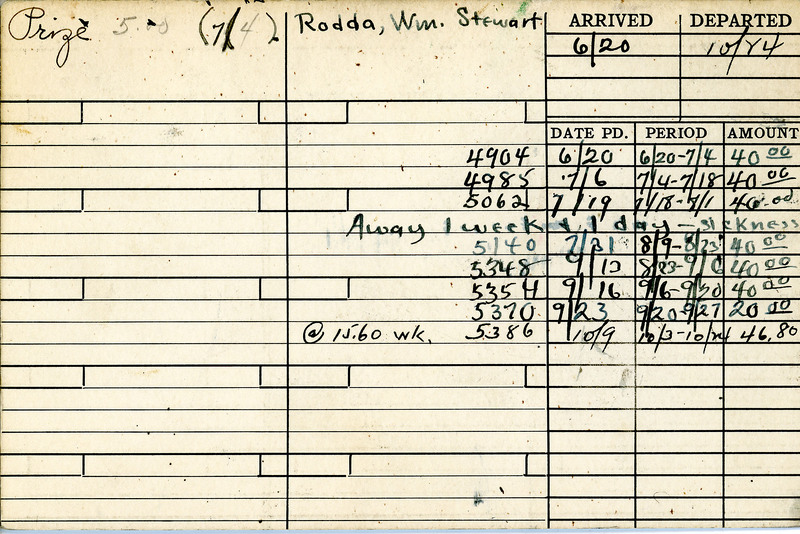 Prize 5.00 (7/4) Rodda, Wm. Stewart ARRIVED DEPARTED
6/20 10/24
DATE PD. PERIOD AMOUNT
4904 6/20 6/20-7/4 40 00
4985 7/6 7/4-7/18 40 00
5062 7/19 7/18-7/1 40.00
Away 1 week & 1 day - sickness
5140 7/31 8/9-8/23 40 00
5348 9/13 8/23-9/6 40 00
5354 9/16 9/6-9/20 40 00
5370 9/23 9/20-9/27 20 00
@ 15.60 wk. 5386 10/9 10/3-10/24 46.80